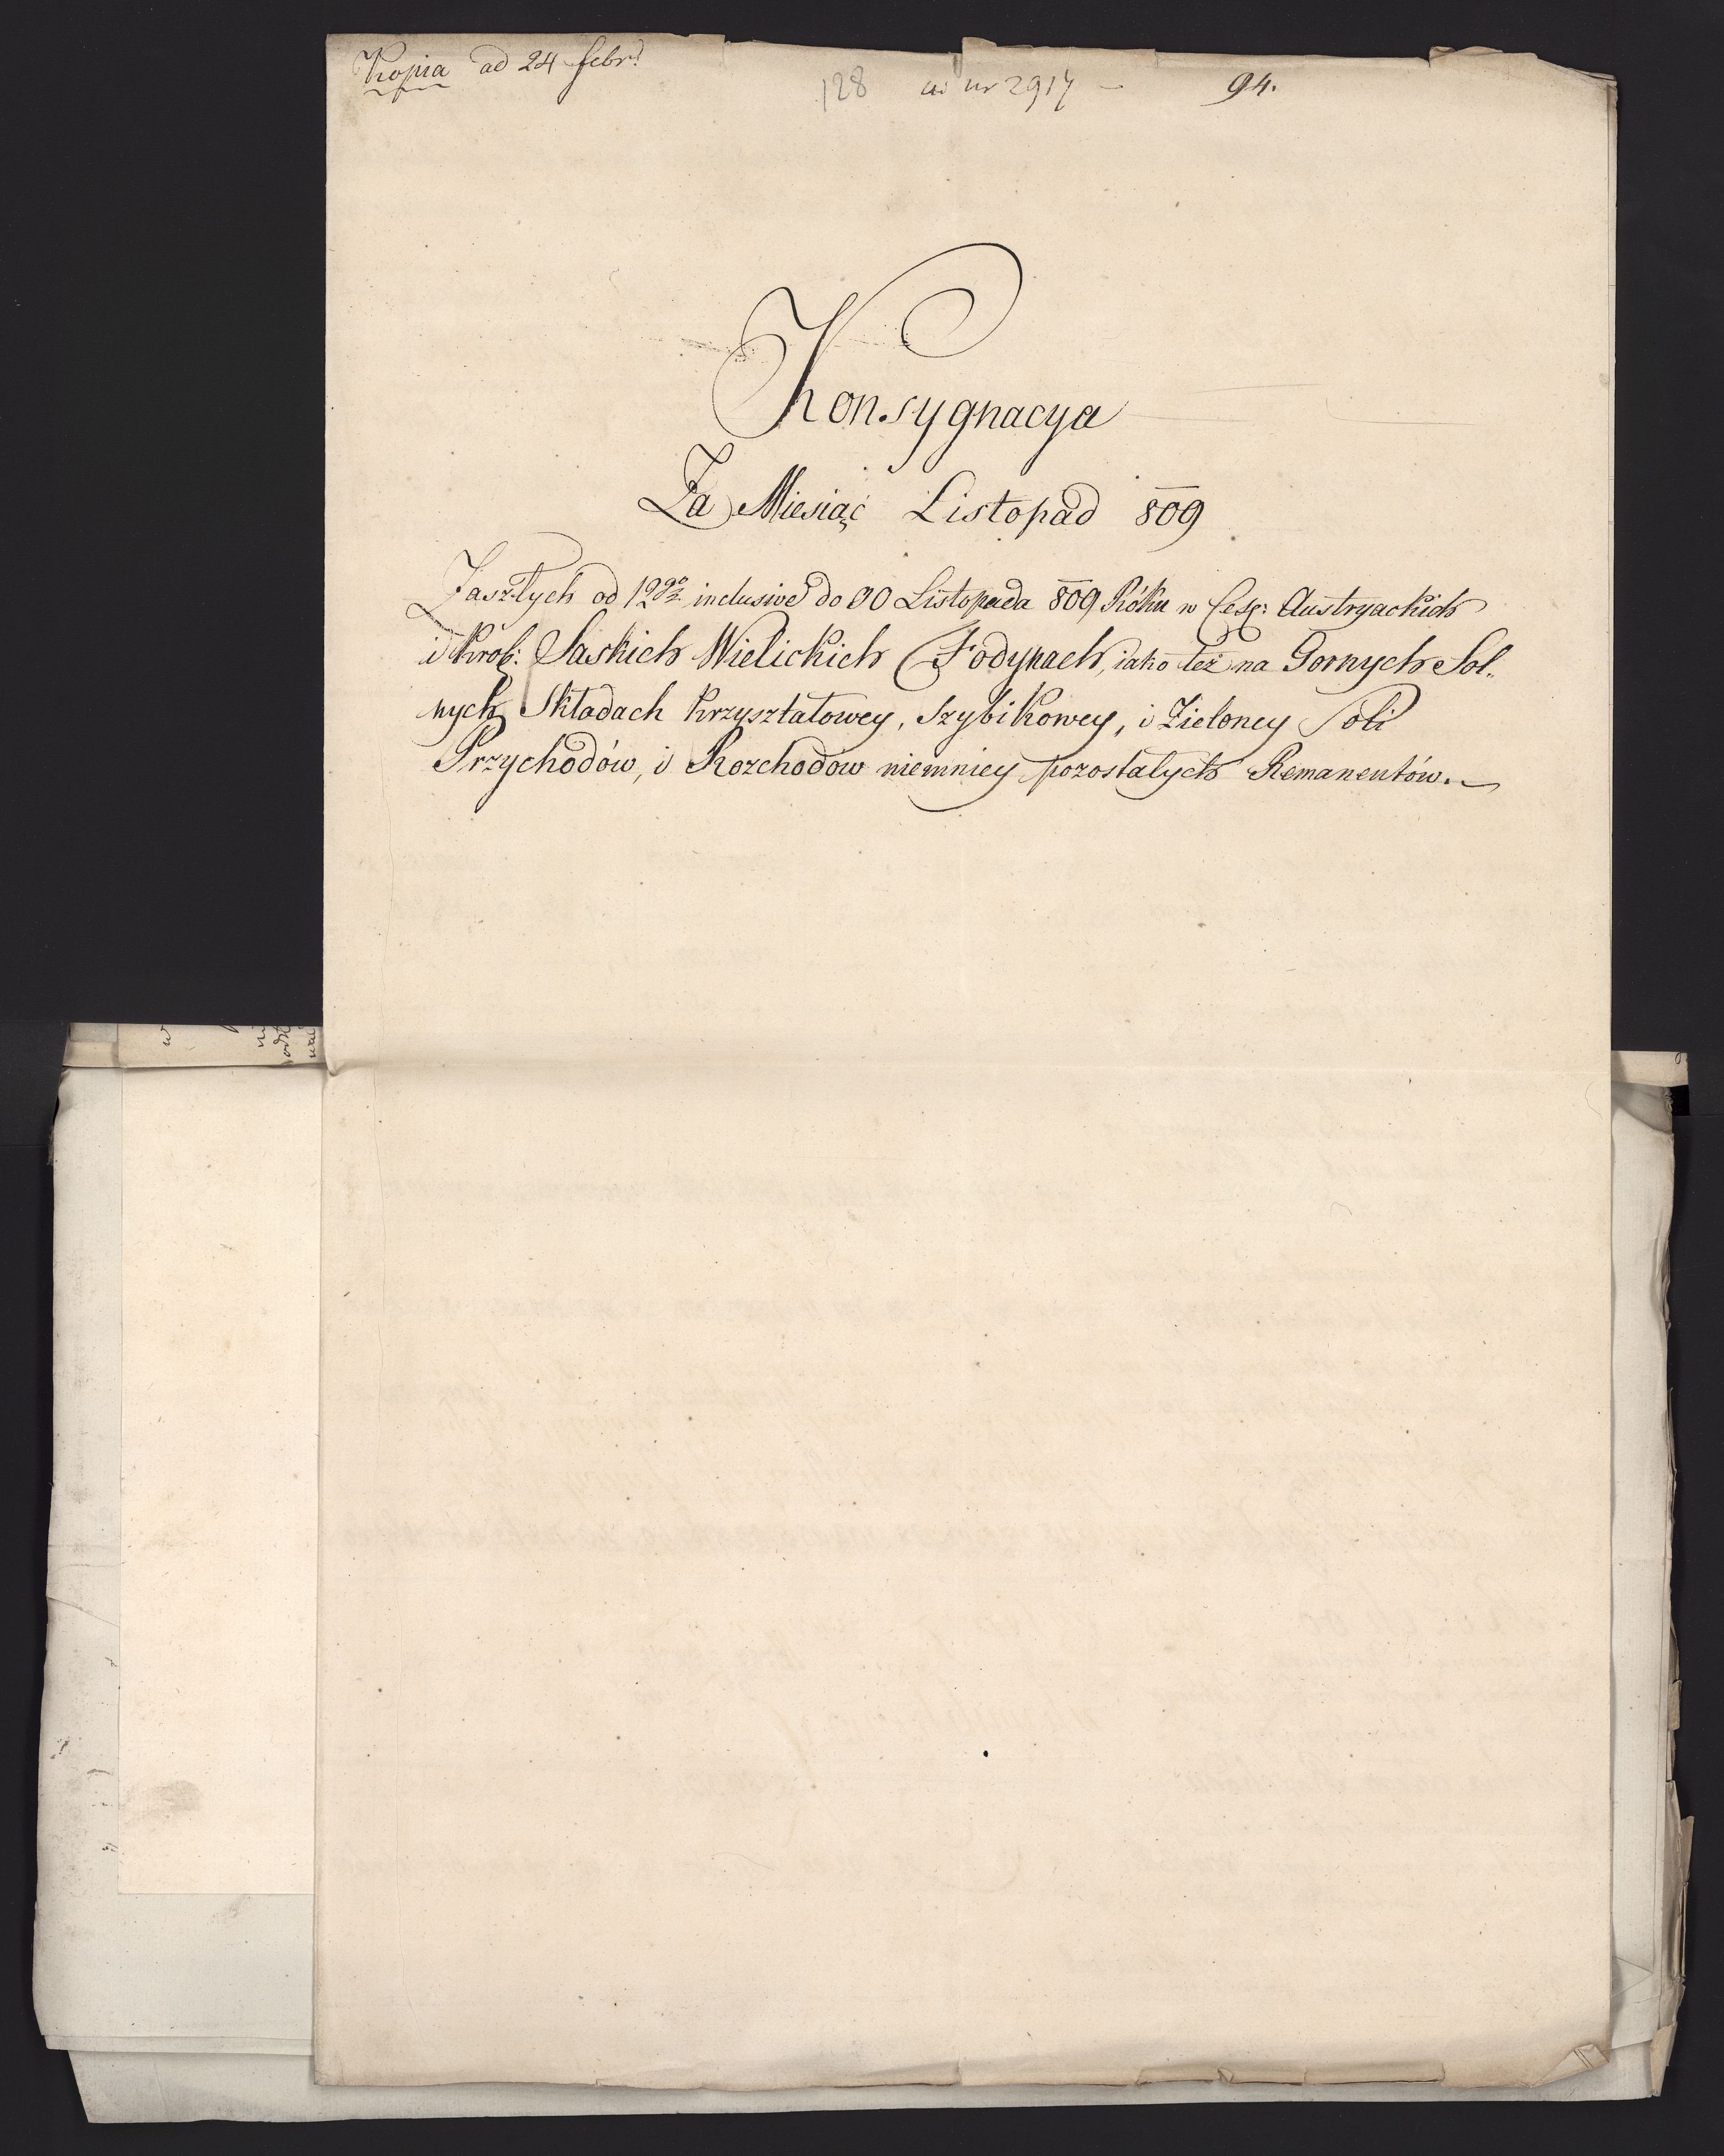 Kopia ad 24 febr:
128 ad nr 2917 — 94.
Konsygnacya
Za Miesiąc Listopad 809
Zaszłych od 12go inclusive do 30 Listopada 809 Róku w Ces: Austryackich
i Król: Saskich Wielickich Fodynach, iako też na Gornych Sol-
nych Składach Krzyształowey, Szybikowey, i Zieloney Soli
Przychodów, i Rozchodów niemniey pozostałych Remanentów.